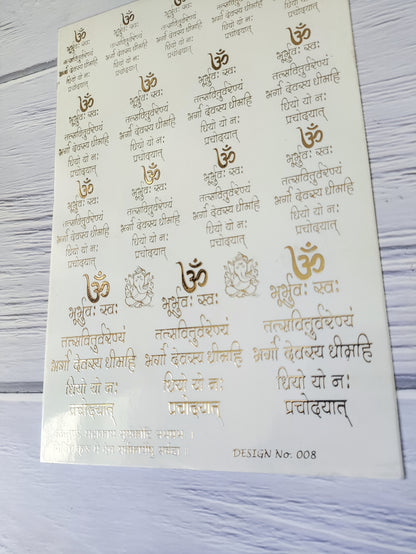 ॐ
भूर्भुवः स्वः
तत्सवितुर्वरेण्यं
भर्गो देवस्य धीमहि
धियो यो नः
प्रचोदयात्
ॐ
भूर्भुवः स्वः
तत्सवितुर्वरेण्यं
भर्गो देवस्य धीमहि
धियो यो नः
प्रचोदयात्
ॐ
भूर्भुवः स्वः
तत्सवितुर्वरेण्यं
भर्गो देवस्य धीमहि
धियो यो नः
प्रचोदयात्
ॐ
भूर्भुवः स्वः
तत्सवितुर्वरेण्यं
भर्गो देवस्य धीमहि
धियो यो नः
प्रचोदयात्
ॐ
भूर्भुवः स्वः
तत्सवितुर्वरेण्यं
भर्गो देवस्य धीमहि
धियो यो नः
प्रचोदयात्
ॐ
भूर्भुवः स्वः
तत्सवितुर्वरेण्यं
भर्गो देवस्य धीमहि
धियो यो नः
प्रचोदयात्
ॐ
भूर्भुवः स्वः
तत्सवितुर्वरेण्यं
भर्गो देवस्य धीमहि
धियो यो नः
प्रचोदयात्
ॐ
भूर्भुवः स्वः
तत्सवितुर्वरेण्यं
भर्गो देवस्य धीमहि
धियो यो नः
प्रचोदयात्
ॐ
भूर्भुवः स्वः
तत्सवितुर्वरेण्यं
भर्गो देवस्य धीमहि
धियो यो नः
प्रचोदयात्
ॐ
भूर्भुवः स्वः
तत्सवितुर्वरेण्यं
भर्गो देवस्य धीमहि
धियो यो नः
प्रचोदयात्
ॐ
भूर्भुवः स्वः
तत्सवितुर्वरेण्यं
भर्गो देवस्य धीमहि
धियो यो नः
प्रचोदयात्
DESIGN No. 008